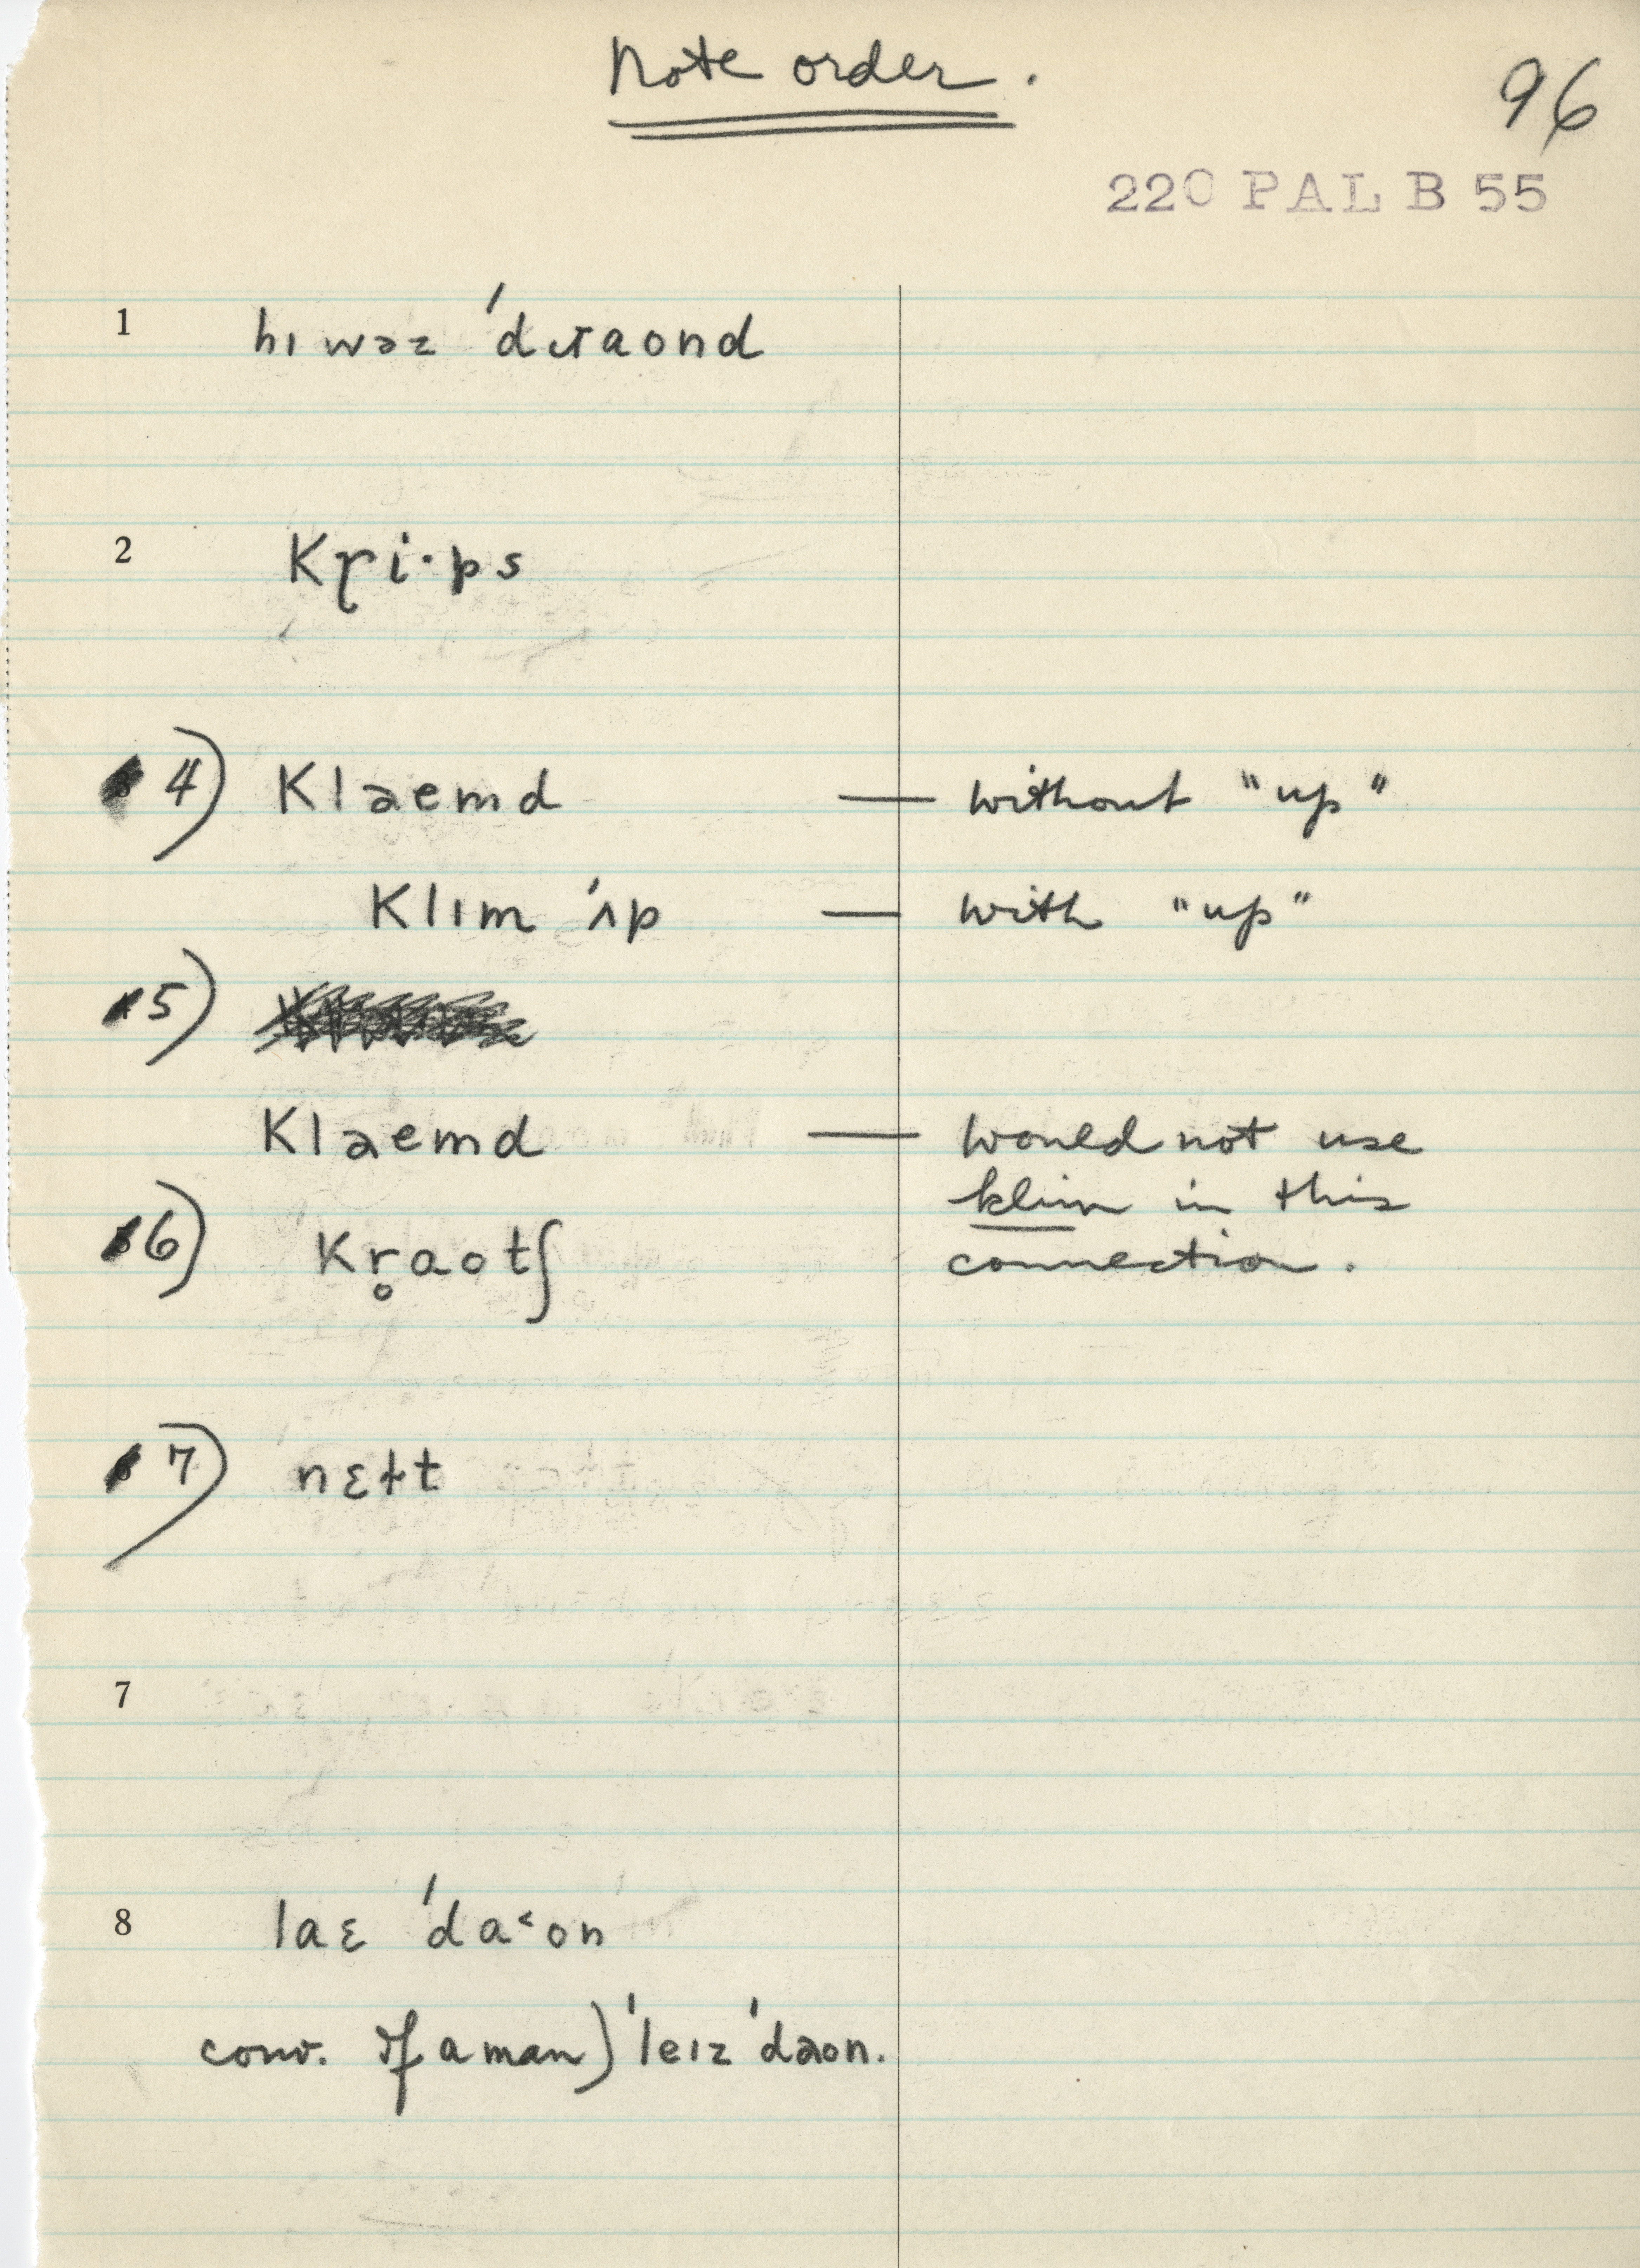 Note order.
96
220 PAL B 55
1 hɪ wəz 'dɾaond
2 Kɽi·ps
4) Klaemd — without "up"
Klɪm 'ʌp — with "up"
5)
Klaemd — would not use
klim in this
6) Kr̥aotʃ connection.
7) nɛɫt
7
8 laɛ 'da˂on
conv. If a man) 'leɪz 'daon.